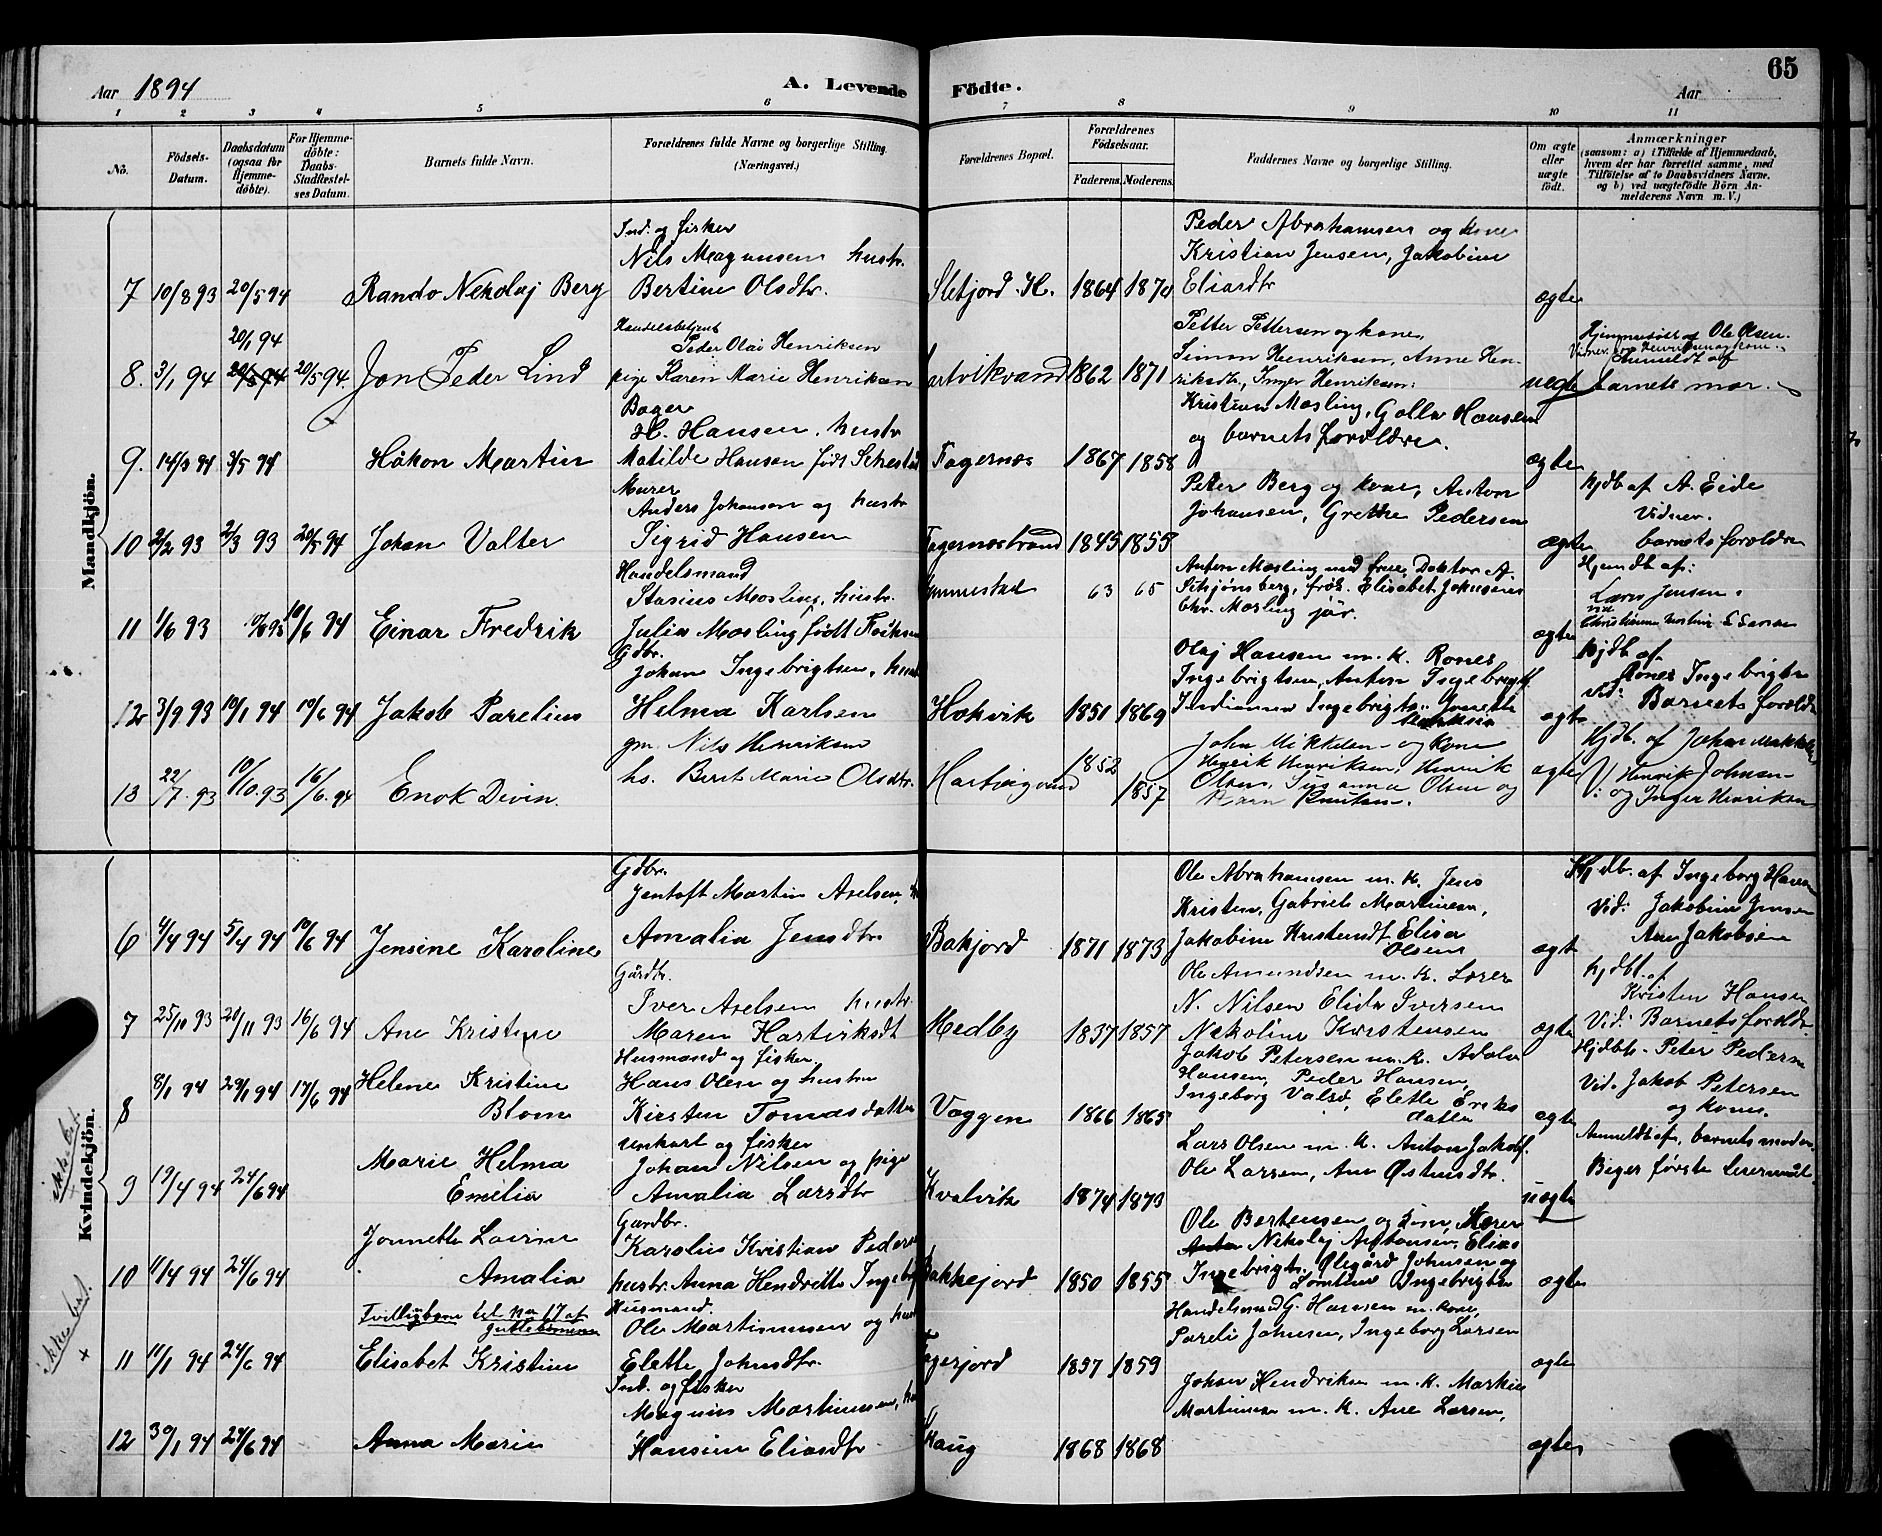 Aar 1894
A. Levende Födte.
Aar
65
1 2 3 4 5 6 7 8 9 10 11
No.
Födsels-Datum.
Daabsdatum (ogsaa for Hjemmedöbte).
For Hjemmedöbte: Daabs-Stadfæstelses Datum.
Barnets fulde Navn.
Forældrenes fulde Navne og borgerlige Stilling (Næringsvei.)
Forældrenes Bopæl.
Forældrenes Födselsaar.
Faderens. Moderens.
Faddernes Navne og borgerlige Stilling.
Om ægte eller uægte födt.
Anmærkninger
(saasom: a) i Tilfælde af Hjemmedaab,
hvem der har forrettet samme, med
Tilföielse af to Daabsvidners Navne,
og b) ved uægtefödte Börn Anmelderens Navn m. V.)
Mandkjön.
Ind. og fisker
Nils Magnussen hustr.
7 10/8 93 20/5 94 Rando Nekolaj Berg Bertine Olsdtr. Sletjord H. 1864 1870
Peder Abrahamsen og kone
Kristian Jensen, Jakobine
Eliasdtr
ægte
Handelsbetjent
Peder Olai Henriksen
8. 3/1 94 20/1 94 20/5 94. Jon Peder Lind pige Karen Marie Henriksen 1862 1871
Petter Pettersen og kone,
Simon Henriksen, Anne Henriksdtr, Inger Henriksen:
uegte
Hjemmedöbt af Ole Olsen.
Anmeldt af
barnets mor.
Bager
H. Hansen, hustr
9. 14/3 94 3/5 94 Håkon Martin Matilde Hansen födt Fagernæs 1867 1858
Kristian Mosling, Golla Hansen
og barnets foreldre.
ægte
Murer
Anders Johansen og hustr
10 2/2 93 2/3 93 20/5 94 Johan Valter Sigrid Hansen Fagernesstrand 1845 1855
Peter Berg og kone, Anton
Johansen, Grethe Pedersen
ægte
hjdb af A. Eide
Vidner.
barnets foreldre
Handelsmand
Stasius Mosling, hustr.
11 1/6 93 10/6 94 Einar Fredrik Julia Mosling födt 63 65
Anton Mosling med frue, Doktor A.
frök. Elisabet Johnsens
Chr. Mosling jör.
ægte
Hjemdt af:
Lars Jensen.
Gdbr.
Johan Ingebrigtsen,
12 3/9 93 10/1 94 10/6 94 Jakob Parelius Helma Karlsen Hokvik 1851 1869
Olaj Hansen m. K. Rones
Ingebrigtsen, Anton Ingebrigt.
ægt
hjdb af
Rones Ingebrigts
vid: Barnets foreldr
gm. Nils Henriksen
13 22/7. 93 10/10.93 16/6.94 Enok Divin. hs. Berit Marie Olsdtr. 1852 1857
John Mikkelsen og kone
Henrik Henriksen, Henrik
Olsen, Susanna Olsen og
Knutsen.
ægte
Hjdb. af Johan
V: Henrik Johnsen
og Inger Henriksen
Kvindekjön.
Gdbr.
Jentoft Martin Axelsen,
6 4/4 94 5/4 94 10/6 94 Jensine Karoline Amalia Jensdtr Bakjord 1871 1873
Ole Abrahamsen m. K. Jens
Kristen, Gabriel Martinsen,
Jakobine Elisa
Olsen
ægt
Hjdb. af Ingeborg Hansen
Vid: Jakobine Jensen
Ane Jakobsen
Gårdbr.
Iver Axelsen hustr.
7 25/10 93 20/11 93 16/6 94 Ane Kristine Maren Medby 1837 1857
Ole Amundsen m. K. Lærer
N. Nilsen Elida Iversen
Nekoline Karstensen
ægte
hjdbt. af
Kristen Hansen
Vid: Barnets foreldr
Husmand og fisker
Hans Olsen og hustru
8 8/1 94 29/1 94 17/6 94 Helene Kristine Blom Kirsten Tomasdatter Vaggen 1866 1865
Jakob Petersen m. K.
Hansen, Peder Hansen,
Ingeborg Elette Eriks
datter
ægte
Hjdbt. Peter Pedersen
Vid. Jakob Petersen
og kone.
ikke bet.
Ungkart og fisker
Johan Nilsen og pige
9 19/4 94 24/6 94 Marie Helma Emelia Amalia Larsdtr Kvalvik 1874 1873
Lars Olsen m. K. Anton Jakobs.
Ole Larsen, Ane Östensdtr.
uægte
Anmeldt af, barnets moder.
Beges förste leiermål.
Gardbr.
Karolius Kristian Peders
10 11/4 94 24/6 94 Jonnette Lovise Amalia hustr. Anna Ingebr Bakkejord 1850 1855
Ole Berteusen og kone,
Nekolaj Antonsen, Elias
Ingebrigts. Olegård Johnsen og
Ingebrigtsen
ægte
ikke bet.
+
Tvillingbarn til No 17 af guttebarnene
Husmand.
Ole Martinussen og
11 11/1 94 24/6 94 Elisabet Kristine Elette Johnsdtr. Fagerjord 1857 1859
Handelsmand G. Hansen m. kone,
Pareli Johnsen, Ingeborg Larsen
ægte
Ind. og fisker
Magnus Martinusen,
12 30/1 94 24/6 94 Anna Marie Hansine Eliasdtr Skaug 1868 1868
Johan Hendriksen m. K. Markus
Martinusen m. K. Ane Larsen,
ægte